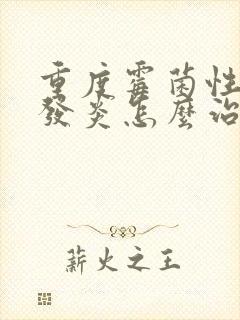 重度霉菌性
發炎怎麼治
薪火之王